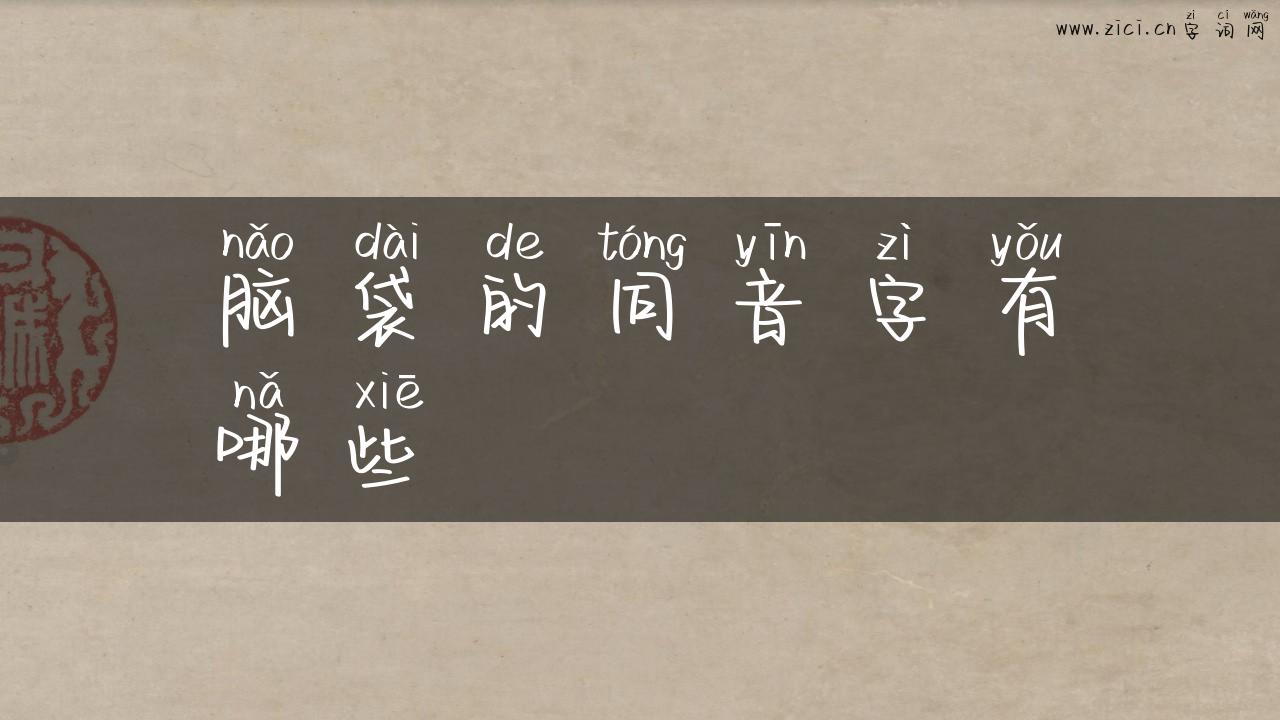 www.zici.cn 字词网
zì cí wǎng
nǎo dài de tóng yīn zì yǒu
脑袋的同音字有
nǎ xiē
哪些